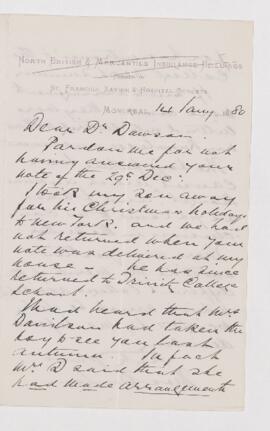 NORTH BRITISH & MERCANTILE INSURANCE BUILDINGS
ST. FRANCOIS XAVIER & HOSPITAL STREETS
MONTREAL, 14 Jany 1880
Dear Dr Dawson
Pardon me for not
having answered your
note of the 29th Dec.
I took my son away
for his Christmas holidays
to New York. and we had
not returned when your
note was delivered at my
house - he has since
returned to Trinity College
School.
I had heard that Mrs
Davidson had taken the
boy to see you last
autumn. In fact
Mrs D said that she
had made arrangements